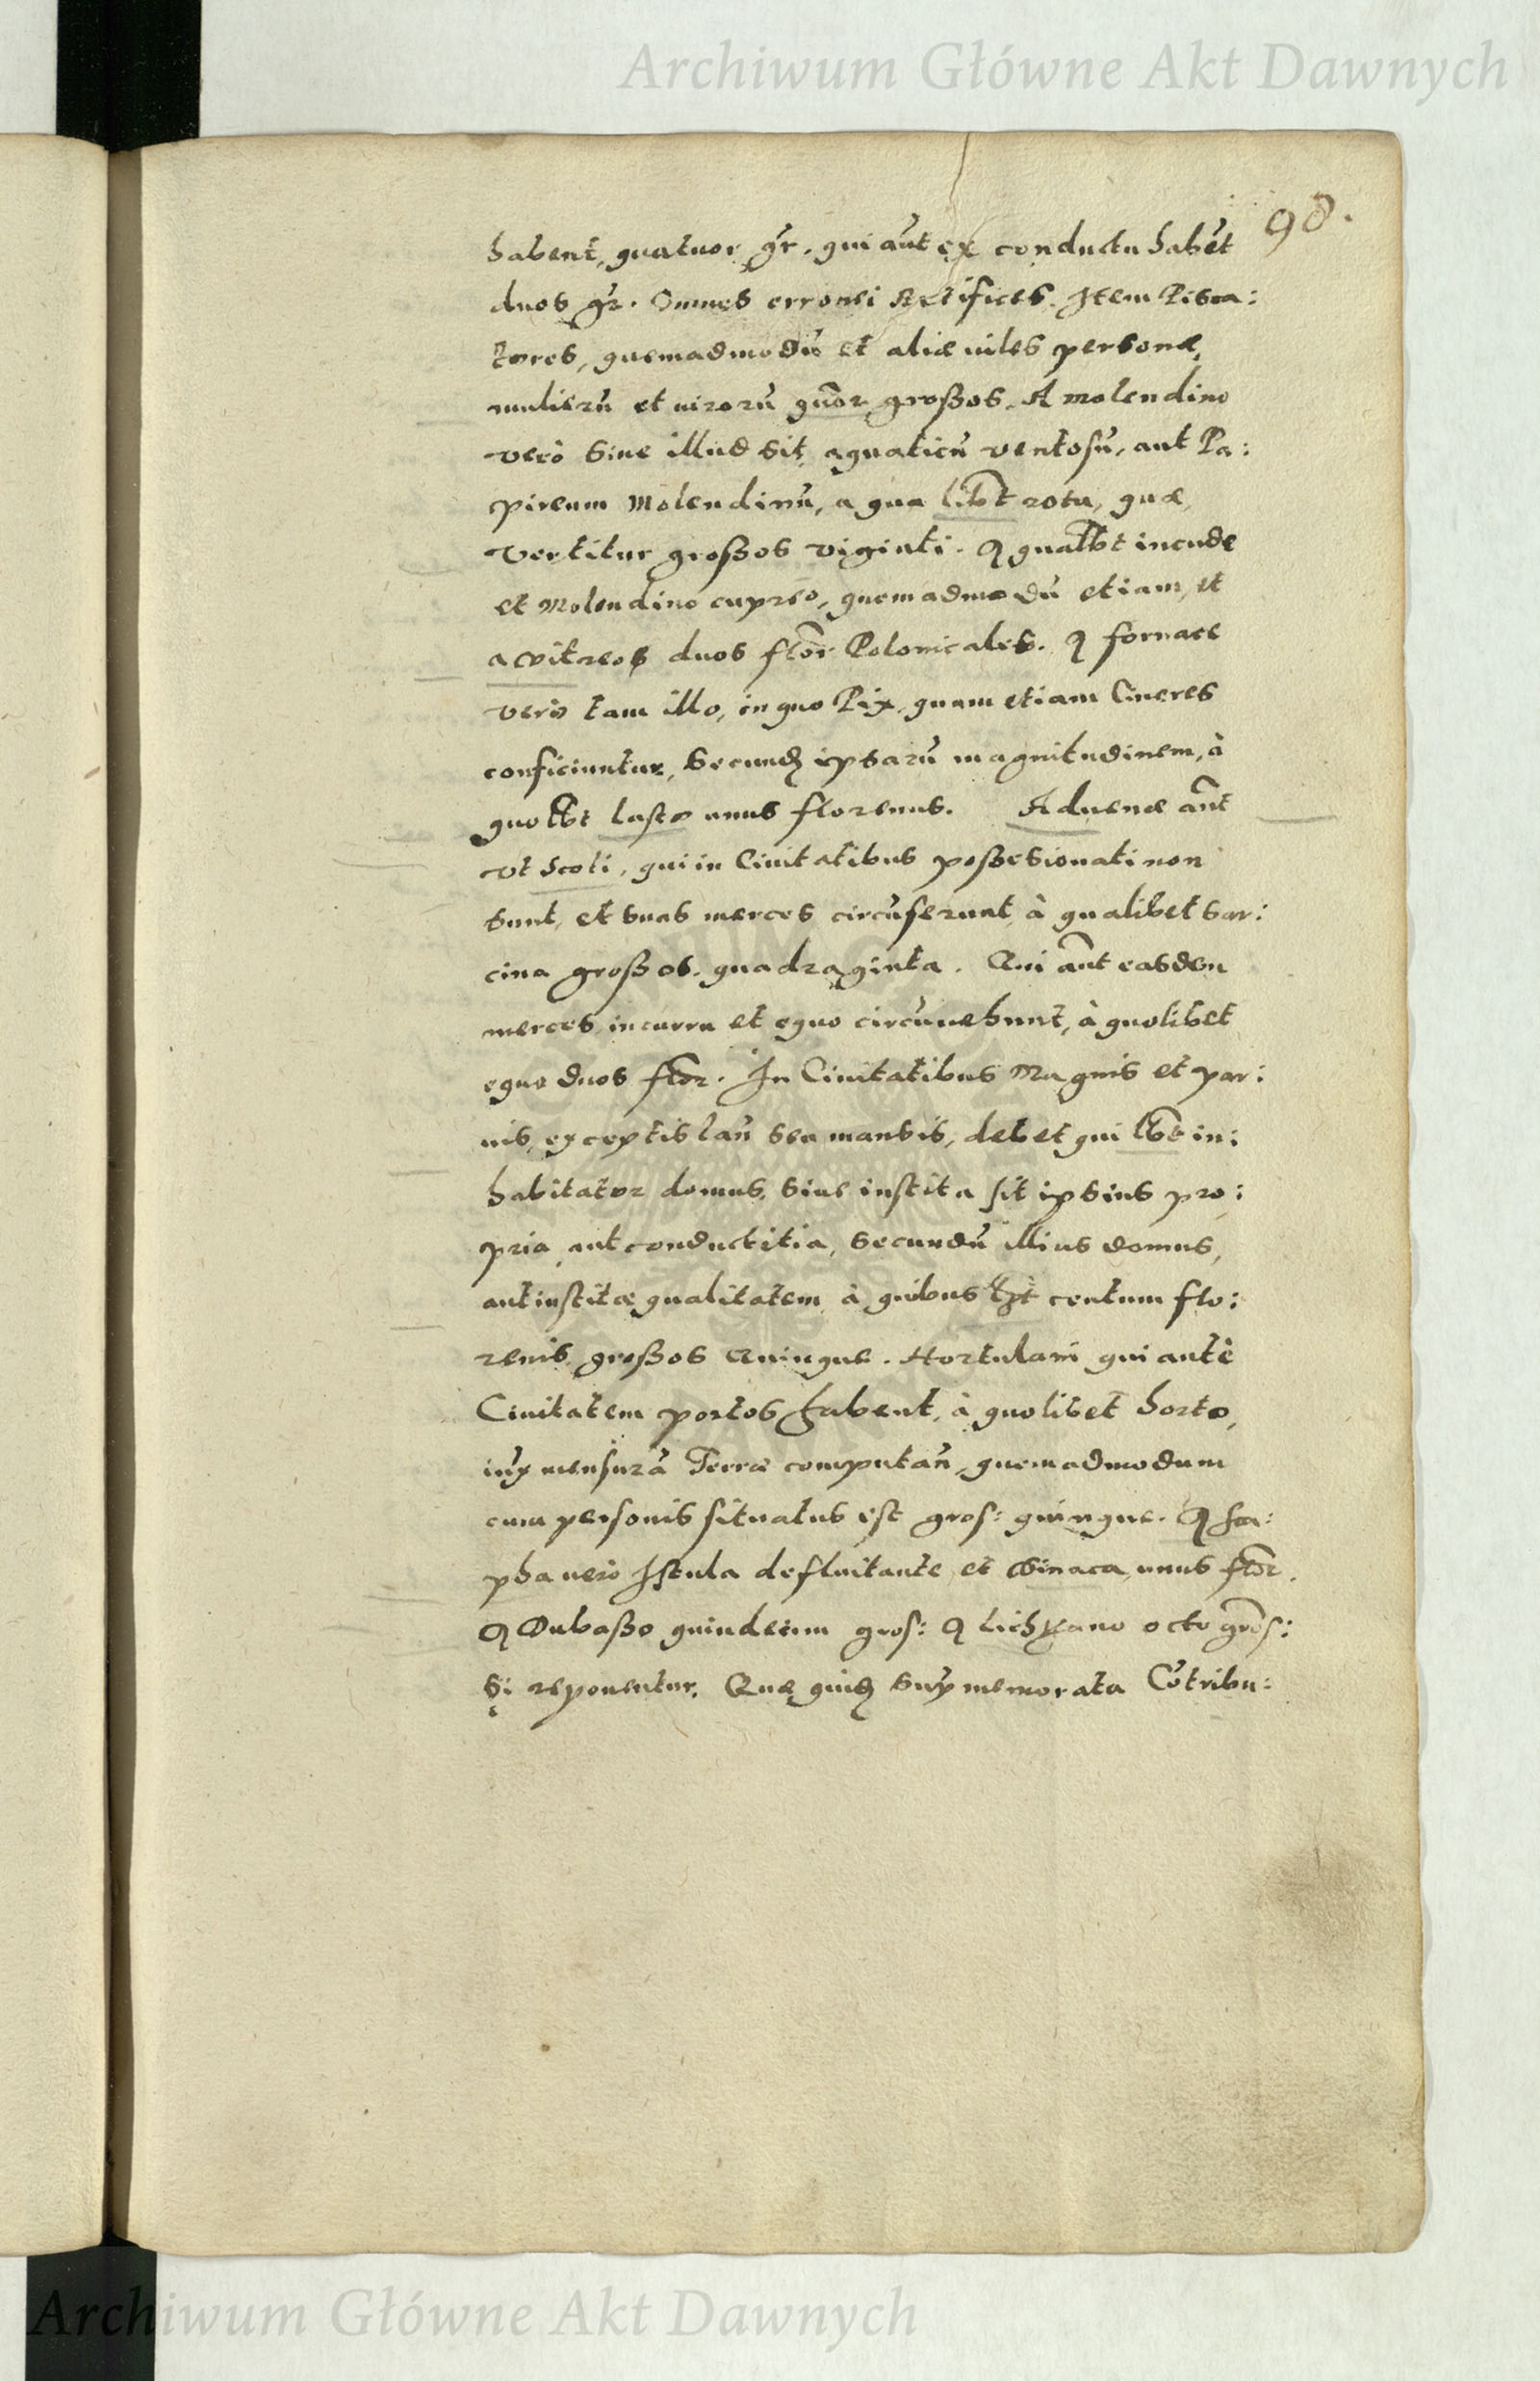 Archiwum Główne Akt Dawnych
98.
habent, quatuor gr̃. qui aũt ex conductu habẽt
duos gr̃. Omnes erronei Artifices. Item Pisca:
tores, quemadmodũ et aliæ uiles personæ,
mulierũ et uirorũ quõr großos. A molendino
verò siue illud sit, aquaticũ ventosũ, aut Pa:
pireum Molendinũ, a qua lib̃t rota, quæ,
vertitur großos viginti. A qual̃bt incude
et Molendino cupreo, quemadmodũ etiam, et
a vitreos duos flõr Polonicales. A fornace
verò tam illo, in quo Pix, quam etiam Cineres
conficiuntur, secund ipsarũ magnitudinem, à
quol̃bt lasto unus florenus. Aduenæ aũt
vt Scoti, qui in Ciuitatibus poßesionati non
sunt, et suas merces circũferunt, à qualibet sar:
cina großos. quadraginta. Qui aũt easdem
merces in curru et equo circũuehunt, à quolibet
equo duos flõr. In Ciuitatibus Magnis et par:
uis, exceptis lañ seu mansis, debet quil̃bt in:
habitator domus, siue instita sit ipsius pro:
pria, aut conductitia, secundũ illius domus,
aut institæ qualitatem, à quibus centum flo:
renis großos Quinque. Hortulani qui antè
Ciuitatem portos habent, à quolibet horto,
iux mensurã Terræ computañ, quemadmodum
cum personis situatus est gros: quinque. A sca:
pha uerò Istula defluitante, et Winaca, unus flõr.
A Dubaßo quindecim gros: A Lichtano octo grõs:
Si reponentur. Quæ quid sup memorata Cõtribu:
Archiwum Główne Akt Dawnych